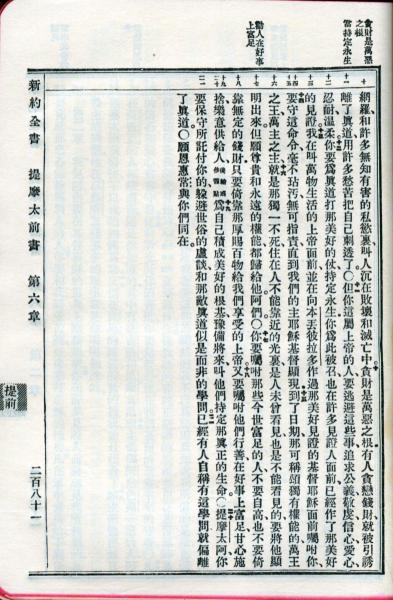 貪財是萬惡
之根
當持定永生
勸人在好事
上富足
網羅和許多無知有害的私慾裏叫人沉在敗壞和滅亡中貪財是萬惡之根有人貪戀錢財就被引誘
離了眞道用許多愁苦把自己刺透了〇但你這屬上帝的人要逃避這些事追求公義敬虔信心愛心
忍耐溫柔你要爲眞道打那美好的仗持定永生你爲此被召也在許多見證人面前已經作了那美好
的見證我在叫萬物生活的上帝面前並在向本丟彼拉多作過那美好見證的基督耶穌面前囑咐你
要守這命令毫不玷污無可指責直到我們的主耶穌基督顯現到了日期那可稱頌獨有權能的萬王
之王萬主之主就是那獨一不死住在人不能靠近的光裏是人未曾看見也是不能看見的要將他顯
明出來但願尊貴和永遠的權能都歸給他阿們〇你要囑咐那些今世富足的人不要自高也不要倚
靠無定的錢財只要倚靠那厚賜百物給我們享受的上帝又要囑咐他們行善在好事上富足甘心施
捨樂意供給人爲自己積成美好的根基豫備將來叫他們持定那眞正的生命〇提摩太阿你
要保守所託付你的躲避世俗的虛談和那敵眞道似是而非的學問已經有人自稱有這學問就偏離
了眞道〇願恩惠常與你們同在
新約全書 提摩太前書 第六章 二百八十一
提前